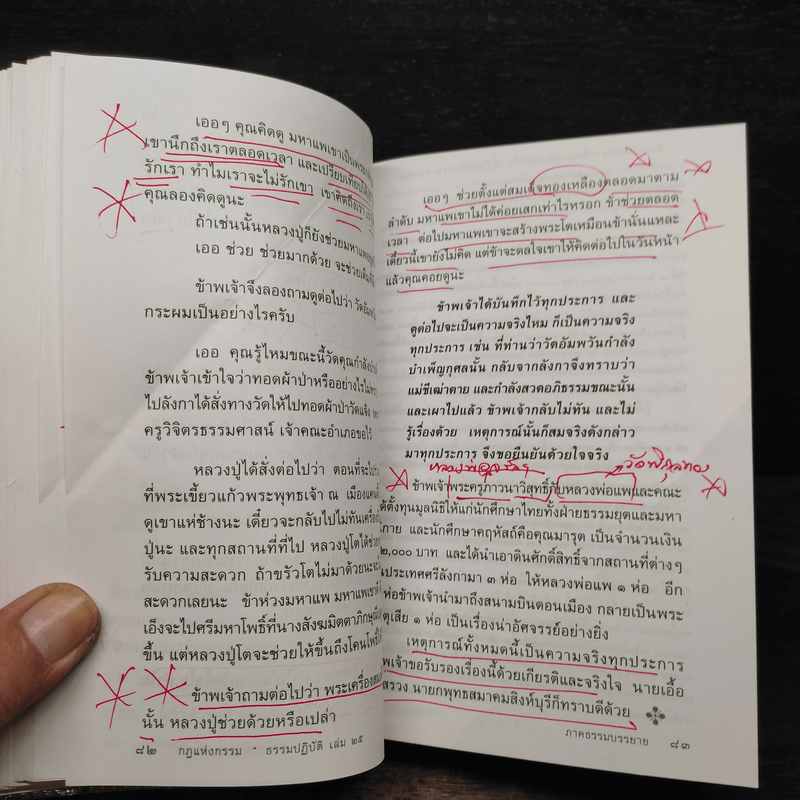 เออๆ คุณคิดดู มหาแพเขาเป็นพระ
เขานึกถึงเราตลอดเวลา และเปรียบเทียบ
รักเรา ทำไมเราจะไม่รักเขา เขาคิดถึงเรา
คุณลองคิดดูนะ
ถ้าเช่นนั้นหลวงปู่ก็ยังช่วยมหาแพอยู่
เออ ช่วย ช่วยมากด้วย จะช่วย
ข้าพเจ้าจึงลองถามดูต่อไปว่า วัดอัมพวัน
กระผมเป็นอย่างไรครับ
เออ คุณรู้ไหมขณะนี้วัดคุณกำลัง
ข้าพเจ้าเข้าใจว่าทอดผ้าป่าหรืออย่างไรไม่
ไปลังกาได้สั่งทางวัดให้ไปทอดผ้าป่าวัดแจ้ง
ครูวิจิตรธรรมศาสน์ เจ้าคณะอำเภอขอไว้
หลวงปู่ได้สั่งต่อไปว่า ตอนที่จะไป
ที่พระเขี้ยวแก้วพระพุทธเจ้า ณ เมือง
ดูเขาแห่ช้างนะ เดี๋ยวจะกลับไปไม่ทันเครื่อง
ปู่นะ และทุกสถานที่ที่ไป หลวงปู่โตได้ช่วย
รับความสะดวก ถ้าขรัวโตไม่มาด้วยนะ
สะดวกเลยนะ ข้าห่วงมหาแพ มหาแพเขา
เองจะไปศรีมหาโพธิ์ที่นางสังฆมิตตาภิกษุณี
ขึ้น แต่หลวงปู่โตจะช่วยให้ขึ้นถึงโคนโพธิ์
ข้าพเจ้าถามต่อไปว่า พระเครื่อง
นั้น หลวงปู่ช่วยด้วยหรือเปล่า
๘๒ กฎแห่งกรรม • ธรรมปฏิบัติ เล่ม ๒๕
เออๆ ช่วยตั้งแต่สมเด็จทองเหลืองตลอดมาตาม
ลำดับ มหาแพเขาไม่ได้ค่อยเสกเท่าไรหรอก ข้าช่วยตลอด
เวลา ต่อไปมหาแพเขาจะสร้างพระโตเหมือนข้านั่นแหละ
เดี๋ยวนี้เขายังไม่คิด แต่ข้าจะดลใจเขาให้คิดต่อไปในวันหน้า
แล้วคุณคอยดูนะ
ข้าพเจ้าได้บันทึกไว้ทุกประการ และ
ดูต่อไปจะเป็นความจริงไหม ก็เป็นความจริง
ทุกประการ เช่น ที่ท่านว่าวัดอัมพวันกำลัง
บำเพ็ญกุศลนั้น กลับจากลังกาจึงทราบว่า
แม่ชีเฒ่าตาย และกำลังสวดอภิธรรมขณะนั้น
และเผาไปแล้ว ข้าพเจ้ากลับไม่ทัน และไม่
รู้เรื่องด้วย เหตุการณ์นั้นก็สมจริงดังกล่าว
มาทุกประการ จึงขอยืนยันด้วยใจจริง
วัดพิกุลทอง
ข้าพเจ้าพระครูภาวนาวิสุทธิ์กับหลวงพ่อแพและคณะ
ได้ตั้งทุนมูลนิธิให้แก่นักศึกษาไทยทั้งฝ่ายธรรมยุตและมหา
นิกาย และนักศึกษาคฤหัสถ์คือคุณมารุต เป็นจำนวนเงิน
๒,๐๐๐ บาท และได้นำเอาดินศักดิ์สิทธิ์จากสถานที่ต่างๆ
ประเทศศรีลังกามา ๓ ห่อ ให้หลวงพ่อแพ ๑ ห่อ อีก
ห่อข้าพเจ้านำมาถึงสนามบินดอนเมือง กลายเป็นพระ
ตุเสีย ๑ ห่อ เป็นเรื่องน่าอัศจรรย์อย่างยิ่ง
เหตุการณ์ทั้งหมดนี้เป็นความจริงทุกประการ
พเจ้าขอรับรองเรื่องนี้ด้วยเกียรติและจริงใจ นายเอื้อ
สรวง นายกพุทธสมาคมสิงห์บุรีก็ทราบดีด้วย
ภาคธรรมบรรยาย ๘๓